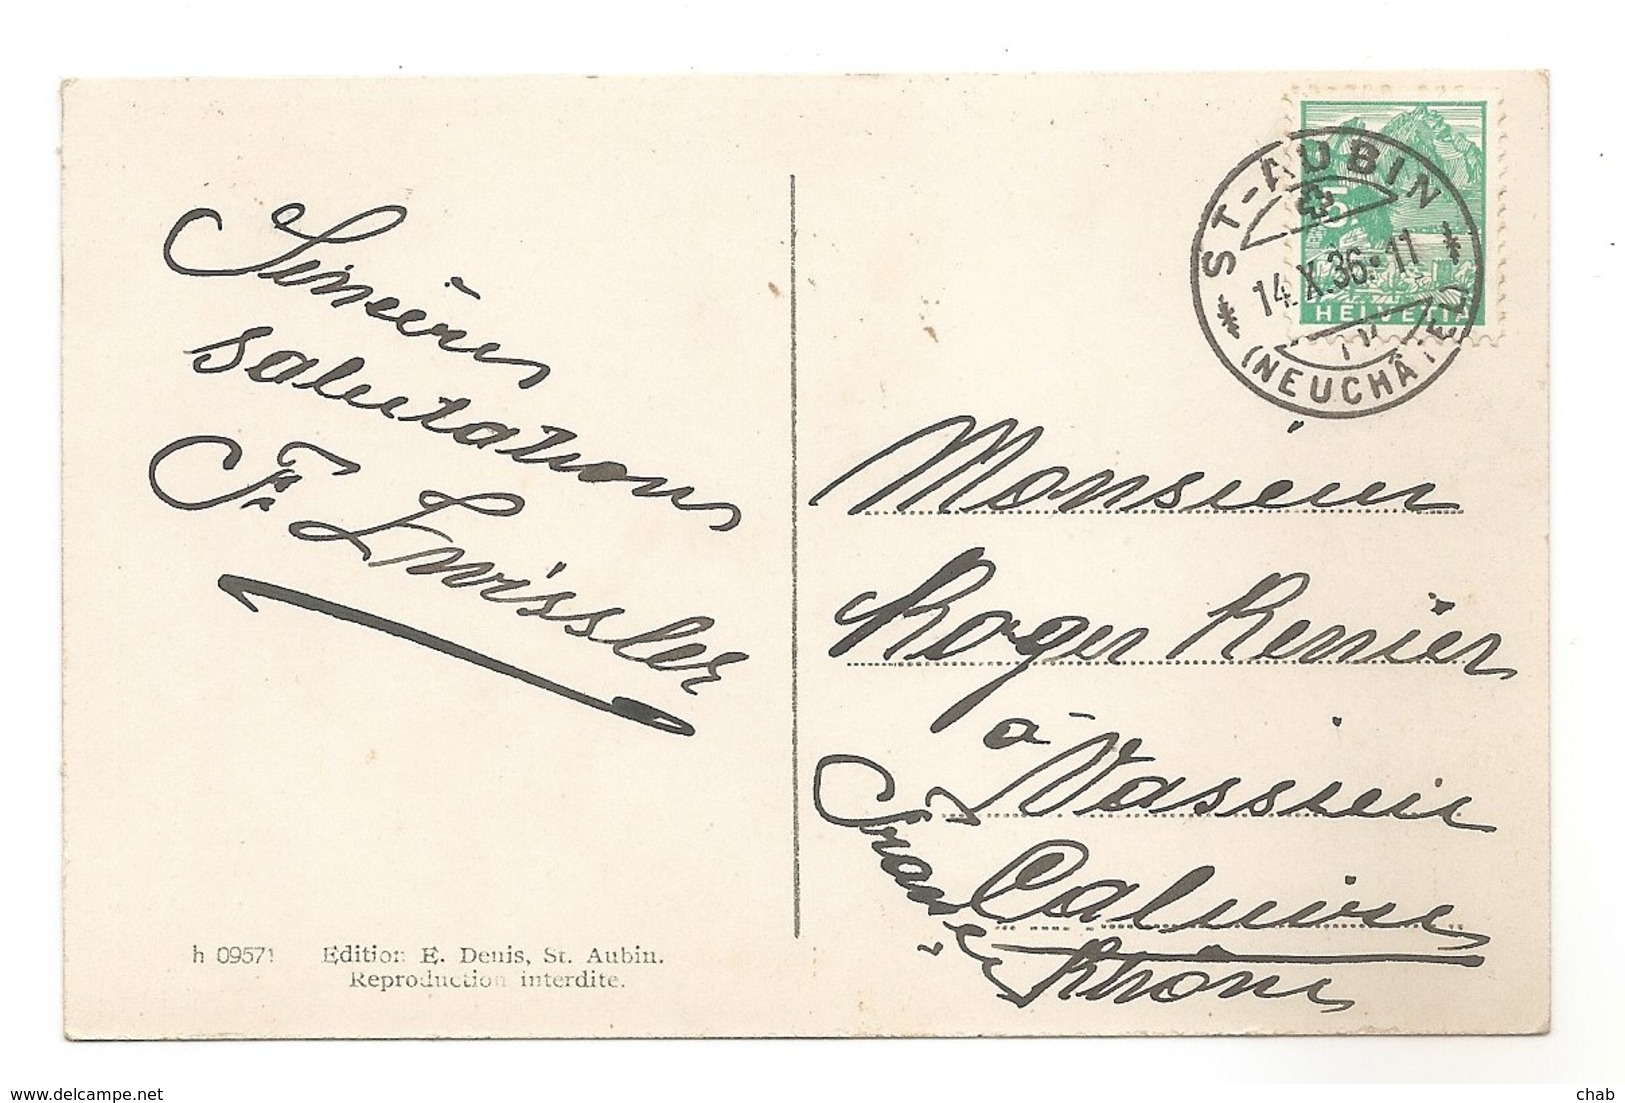 Sincères
salutations
Fr. Zwissler
h 09571 Edition E. Denis, St. Aubin.
Reproduction interdite.
5
HELVETIA
ST-AUBIN
14.X.36-11
IV
(NEUCHÂTEL)
Monsieur
Roger Renier
à Vassieu
Caluire
Rhône
France
delcampe.net
chab